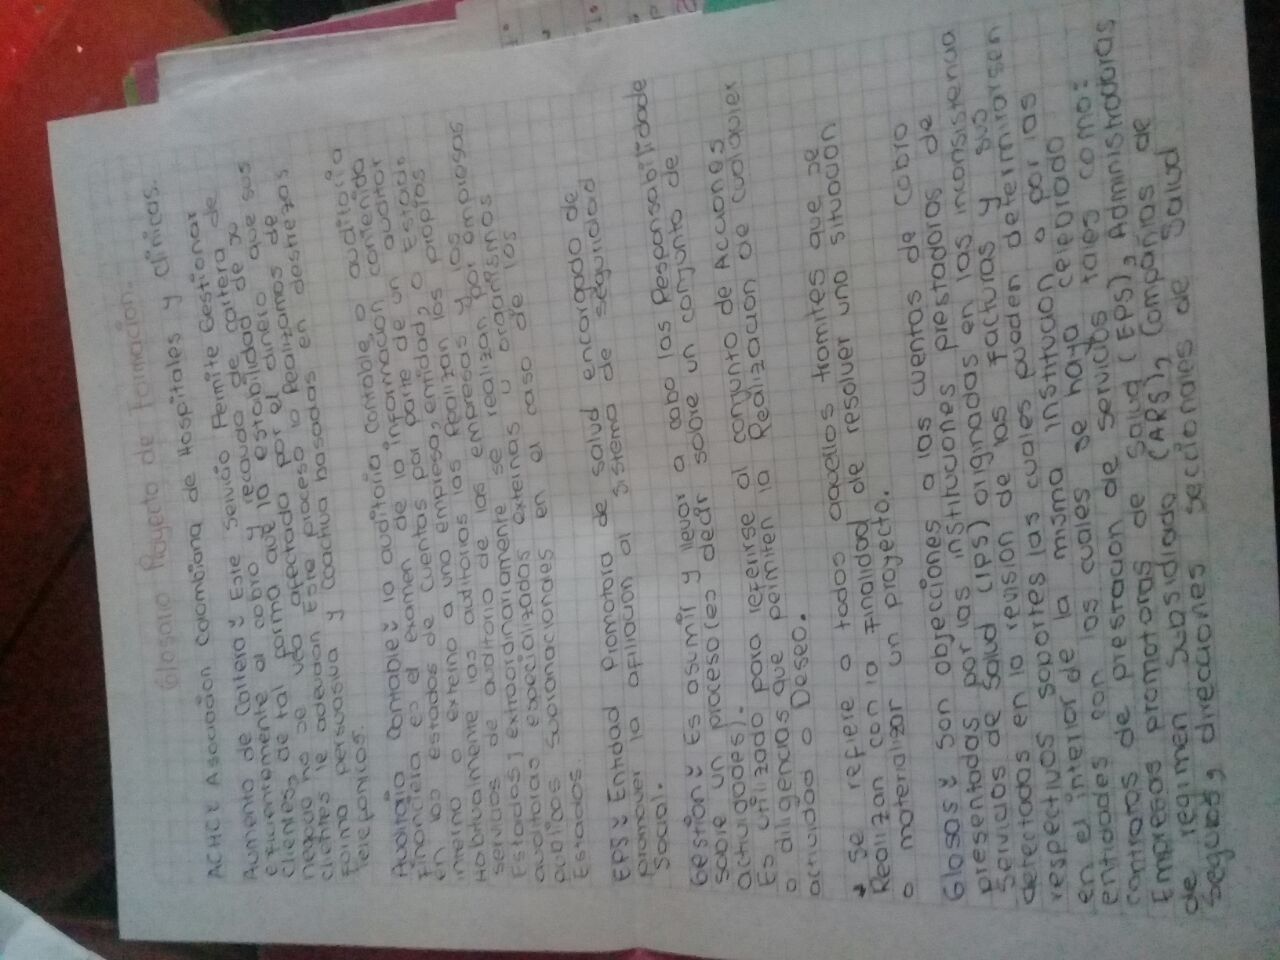 Glosario Proyecto de Formacion.
ACHC: Asociacion Colombiana de Hospitales y Clinicas.
Aumento de Cartera: Este servicio Permite Gestionar
eficientemente el cobro y recaudo de cartera de
clientes, de tal forma que la estabilidad de su
negocio no se vea afectada por el dinero que sus
clientes le adeudan Este proceso lo Realizamos de
forma persuasiva y coactiva basadas en destrezas
telefonicas.
Auditoria Contable: la auditoria contable o auditoria
financiera es el examen de la informacion contenida
en los estados de cuentas por parte de un auditor
interno o externo a una empresa, entidad, o Estado
Habitualmente las auditorias las Realizan los propios
servicios de auditoria de las empresas y los
Estados, extraordinariamente se realizan por empresas
auditoras especializadas externas u organismos
publicos supranacionales en el caso de los
Estados.
EPS: Entidad Promotora de salud encargado de
promover la afiliacion al sistema de seguridad
Social.
Gestion: Es asumir y llevar a cabo las Responsabilidade
sobre un proceso (es decir sobre un conjunto de
actividades).
Es utilizado para referirse al conjunto de Acciones
o diligencias que permiten la Realizacion de cualquier
actividad o Deseo.
Se refiere a todos aquellos tramites que se
Realizan con la Finalidad de resolver una situacion
o materializar un proyecto.
Glosas: Son objecciones a las cuentas de cobro
presentadas por las instituciones prestadoras de
Servicios de Salud (IPS) originadas en las inconsistencia
detectadas en la revision de las facturas y sus
respectivos soportes las cuales pueden determirarsen
en el interior de la misma institucion o por las
entidades con las cuales se haya celebrado
contratos de prestacion de servicios tales como:
Empresas promotoras de Salud (EPS), Administradoras
de regimen Subsidiado (ARS), Compañias de
Seguros, direcciones seccionales de Salud